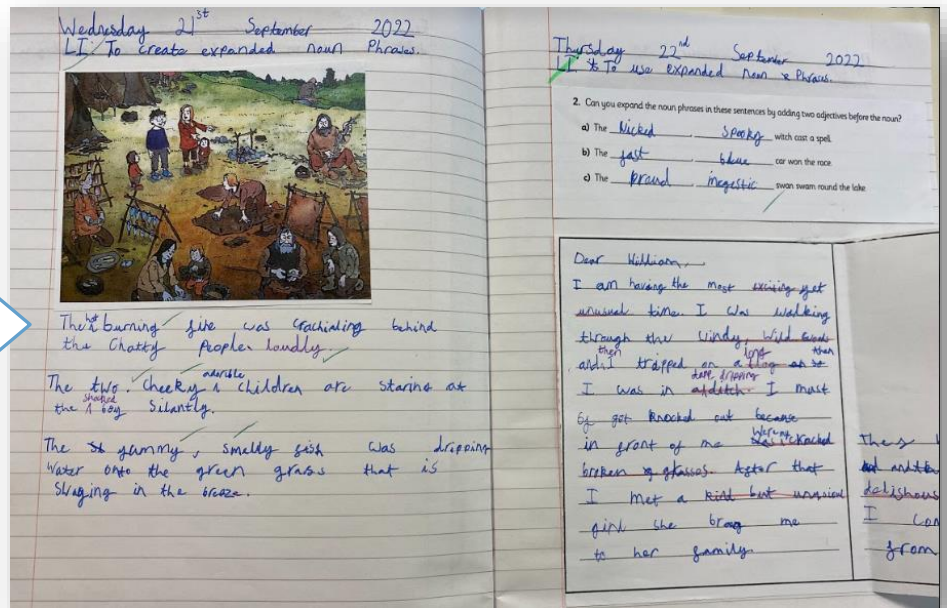 Wednesday 21st September 2022
LI: To create expanded noun Phrases.
The hot burning fire was crachialing behind
the Chatty People loudly.
The two cheeky adorble children are staring at
the shocked boy Silantly.
The yammy, smelly fish was dripping
water onto the green grass that is
Swaging in the breeze.
Thursday 22nd September 2022
LI To use expanded noun Phrases.
2. Can you expand the noun phrases in these sentences by adding two adjectives before the noun?
a) The Wicked, Spooky witch cast a spell.
b) The fast, blue car won the race.
c) The Proud, magestic swan swam round the lake.
Dear William,
I am having the most exciting yet
unusual time. I was walking
through the windy, wild woods
then long then
and I trapped on a
dark dripping
I was in a ditch. I must
got knocked out because
in front of me were cracked
broken glasses. After that
I met a kind but unusual
girl she brag me
to her family.
and the
dalishous
I
from